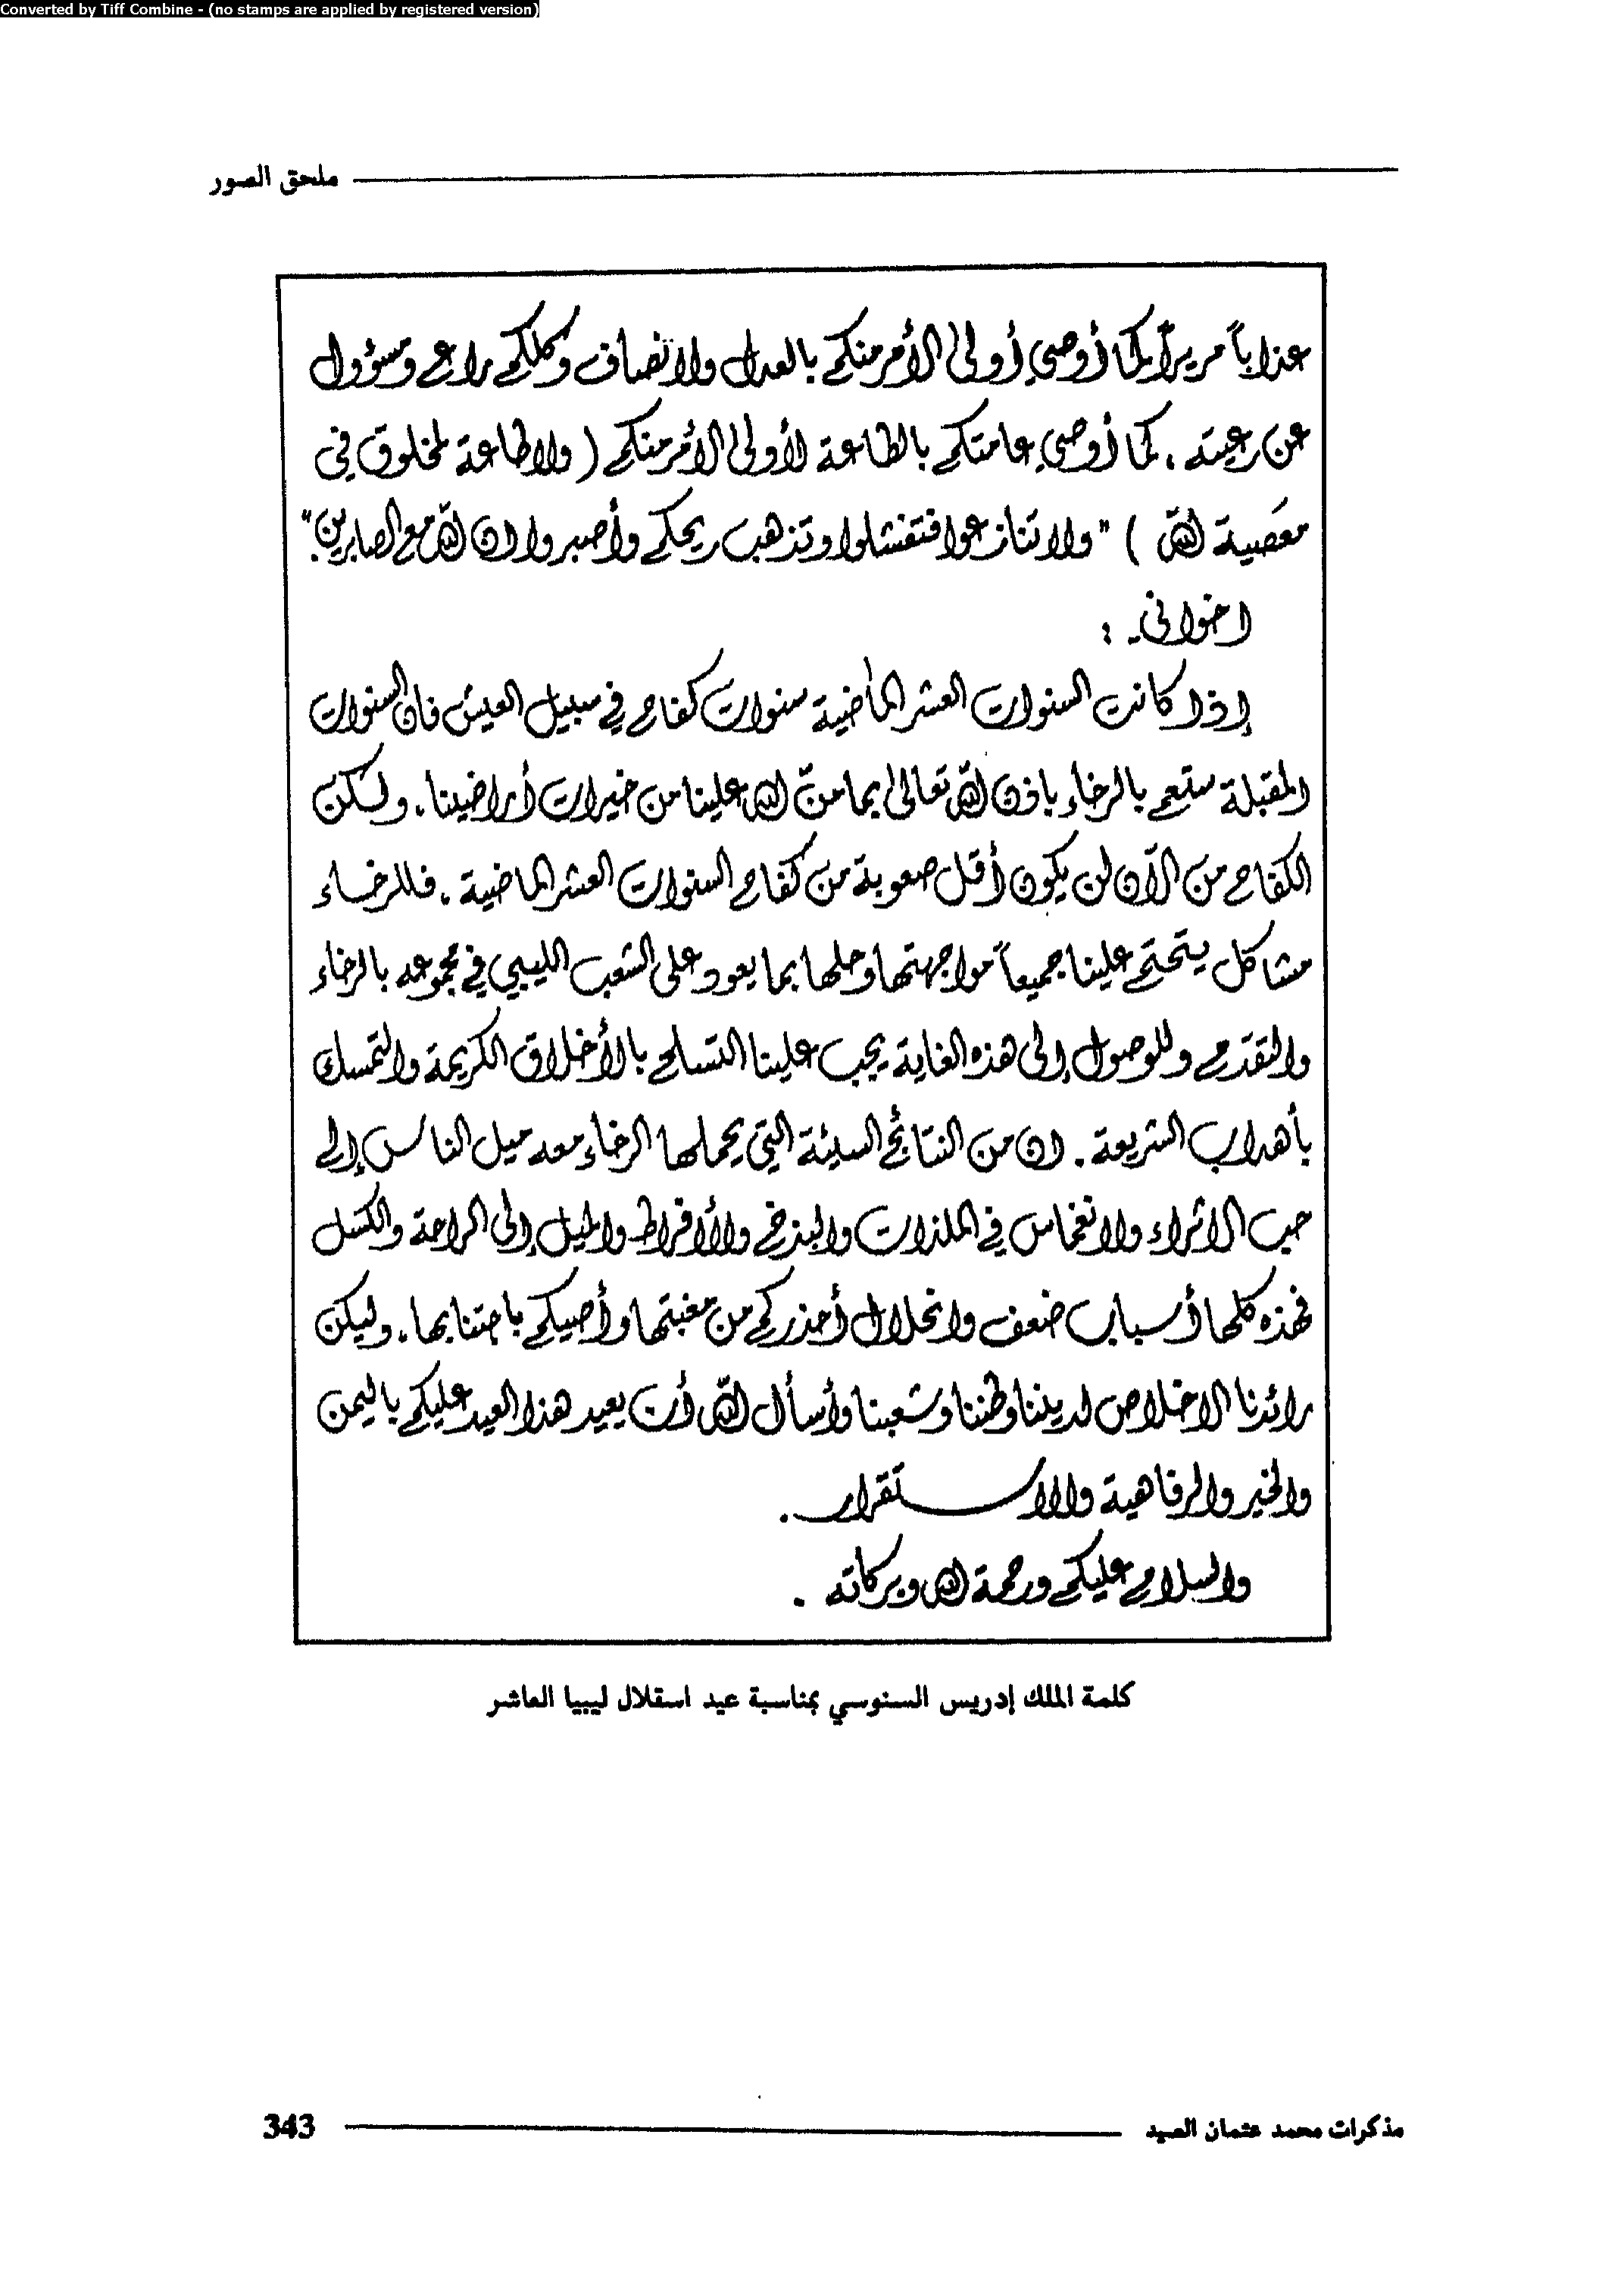 Converted by Tiff Combine - (no stamps are applied by registered version)
ملحق الصور
عذاباً مريراً كما أوصي أولى الأمر منكم بالعدل والانصاف وكلكم راع ومسؤول
عن رعيته . كما أوصي عامتكم بالطاعة لأولى الأمر منكم ( ولا طاعة لمخلوق في
معصية الله ) " ولا تنازعوا فتفشلوا وتذهب ريحكم وأصبروا ان الله مع الصابرين . "
اخوانى :
إذا كانت السنوات العشر الماضية سنوات كفاح في سبيل العيش فان السنوات
المقبلة ستعم بالرخاء باذن الله تعالى بما منّ الله علينا من خيرات أراضينا . ولكن
الكفاح من الآن لن يكون أقل صعوبة من كفاح السنوات العشر الماضية . فللرخاء
مشاكل يتحتم علينا جميعاً مواجهتها وحلها بما يعود على الشعب الليبي في مجموعه بالرخاء
والتقدم وللوصول إلى هذه الغاية يجب علينا التسلح بالأخلاق الكريمة والتمسك
بأهداب الشريعة . ان من النتائج السيئة التي يحملها الرخاء معه ميل الناس إلى
حب الاثراء والانغماس في الملذات والبذخ والأفراط والميل إلى الراحة والكسل
فهذه كلها أسباب ضعف وانحلال أحذركم من مغبتها وأصيكم باجتنابها . وليكن
رائدنا الاخلاص لديننا وطننا وشعبنا وأسأل الله أن يعيد هذا العيد عليكم باليمن
والخير والرفاهية والاستقرار .
والسلام عليكم ورحمة الله وبركاته .
كلمة الملك إدريس السنوسي بمناسبة عيد استقلال ليبيا العاشر
مذكرات محمد عثمان الصيد 343